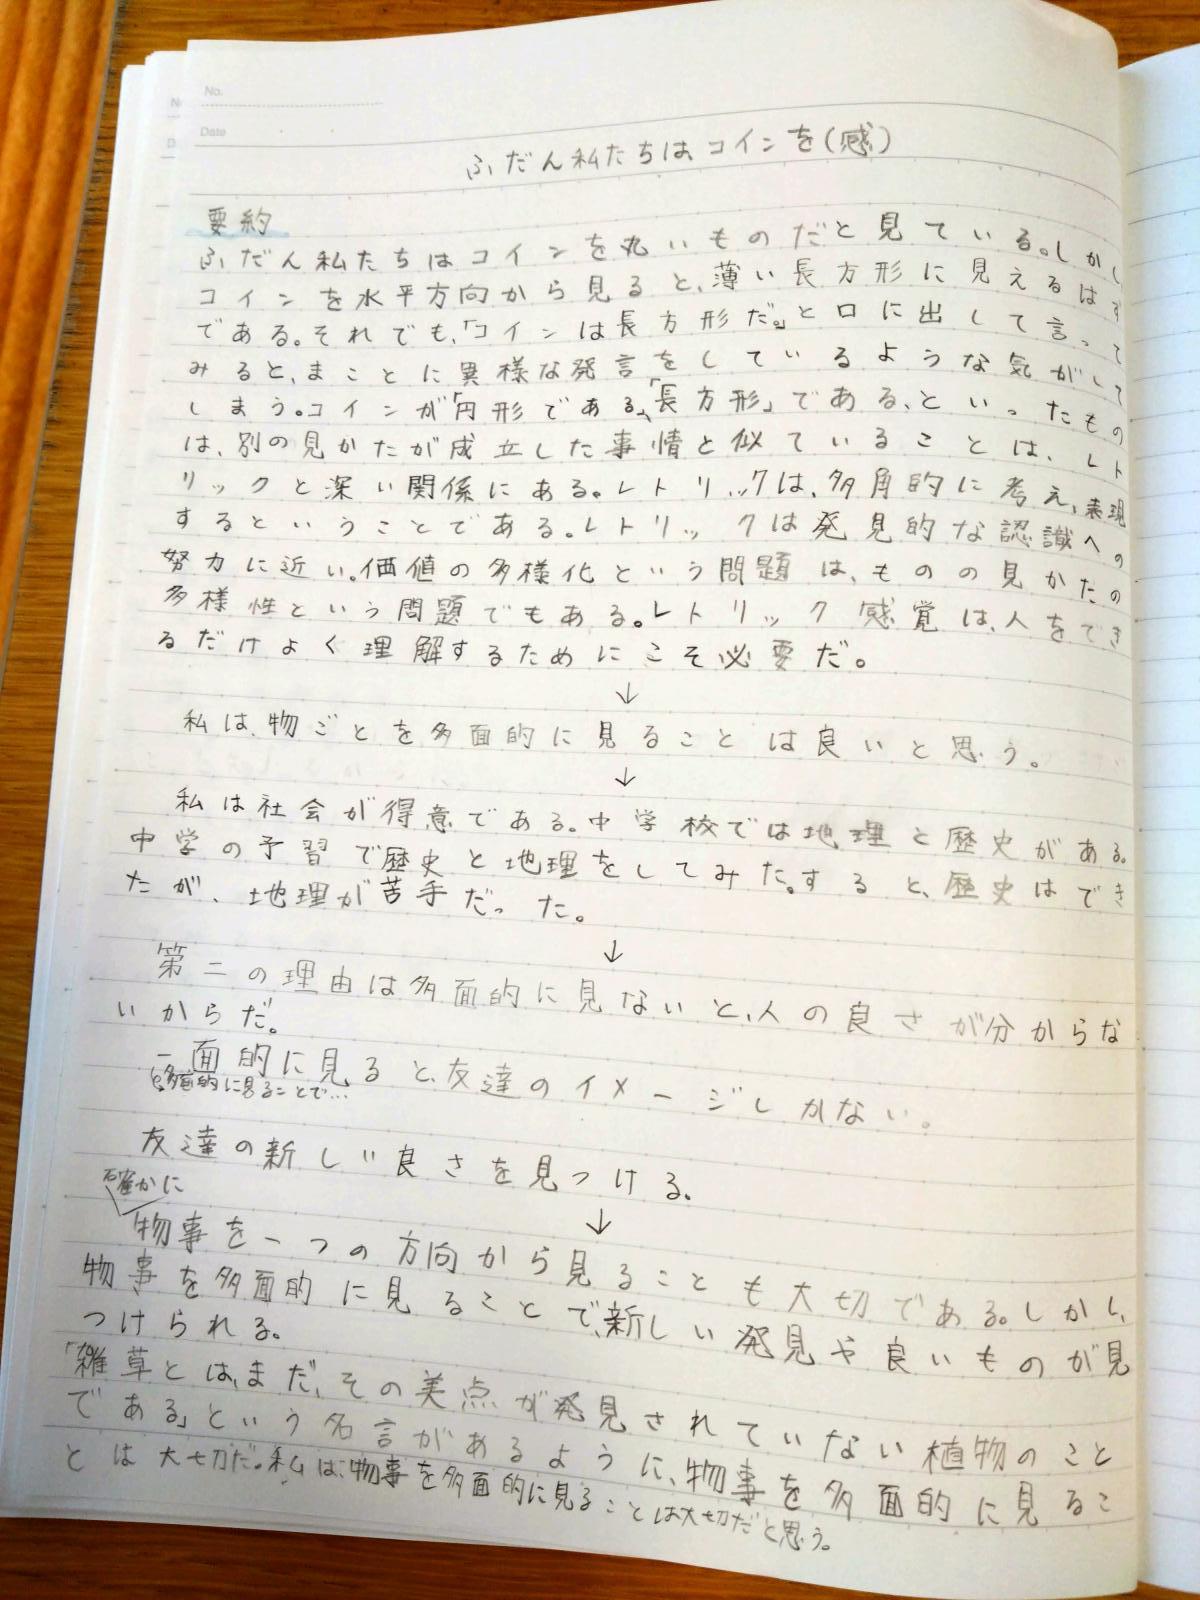 No.
Date
ふだん私たちはコインを(感)
要約
ふだん私たちはコインを丸いものだと見ている。しかし、
コインを水平方向から見ると、薄い長方形に見えるはず
である。それでも、「コインは長方形だ。」と口に出して言って
みると、まことに異様な発言をしているような気がして
しまう。コインが「円形である、「長方形」である、といったもの
は、別の見かたが成立した事情と似ていることは、レト
リックと深い関係にある。レトリックは、多角的に考え、表現
するということである。レトリックは発見的な認識への
努力に近い。価値の多様化という問題は、ものの見かたの
多様性という問題でもある。レトリック感覚は、人をでき
るだけよく理解するためにこそ必要だ。
↓
私は、物ごとを多面的に見ることは良いと思う。
↓
私は社会が得意である。中学校では地理と歴史がある。
中学の予習で歴史と地理をしてみた。すると、歴史はでき
たが、地理が苦手だった。
↓
第二の理由は多面的に見ないと、人の良さが分からな
いからだ。
一面的に見ると、友達のイメージしかない。
多面的に見ることで…
友達の新しい良さを見つける。
確かに
↓
物事を一つの方向から見ることも大切である。しかし、
物事を多面的に見ることで、新しい発見や良いものが見
つけられる。
「雑草とは、まだ、その美点が発見されていない植物のこと
である」という名言があるように、物事を多面的に見るこ
とは大切だ。私は、物事を多面的に見ることは大切だと思う。